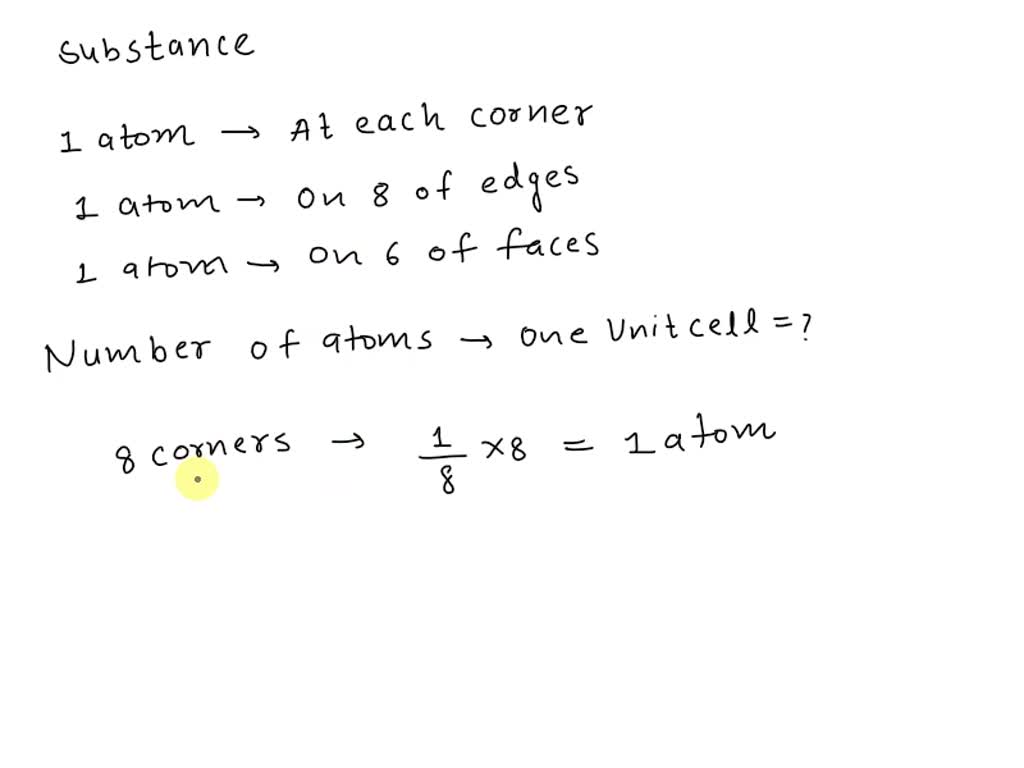 Substance
1 atom → At each corner
1 atom → on 8 of edges
1 atom → on 6 of faces
Number of atoms → one Unit cell = ?
8 corners → 1/8 × 8 = 1 atom